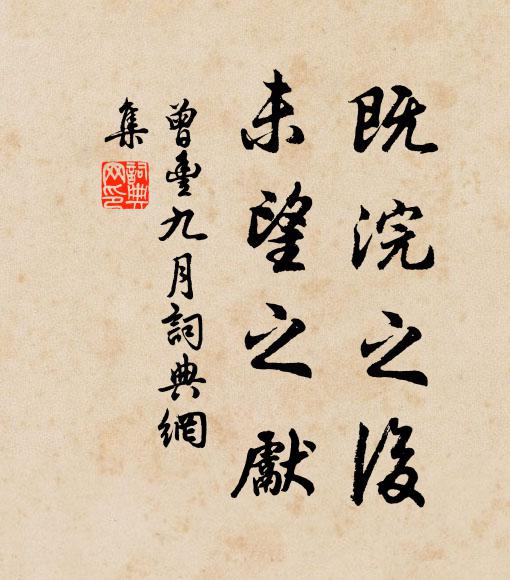 既浣之後
未望之獻
曾豐九月詞典網
集
詞典
网印